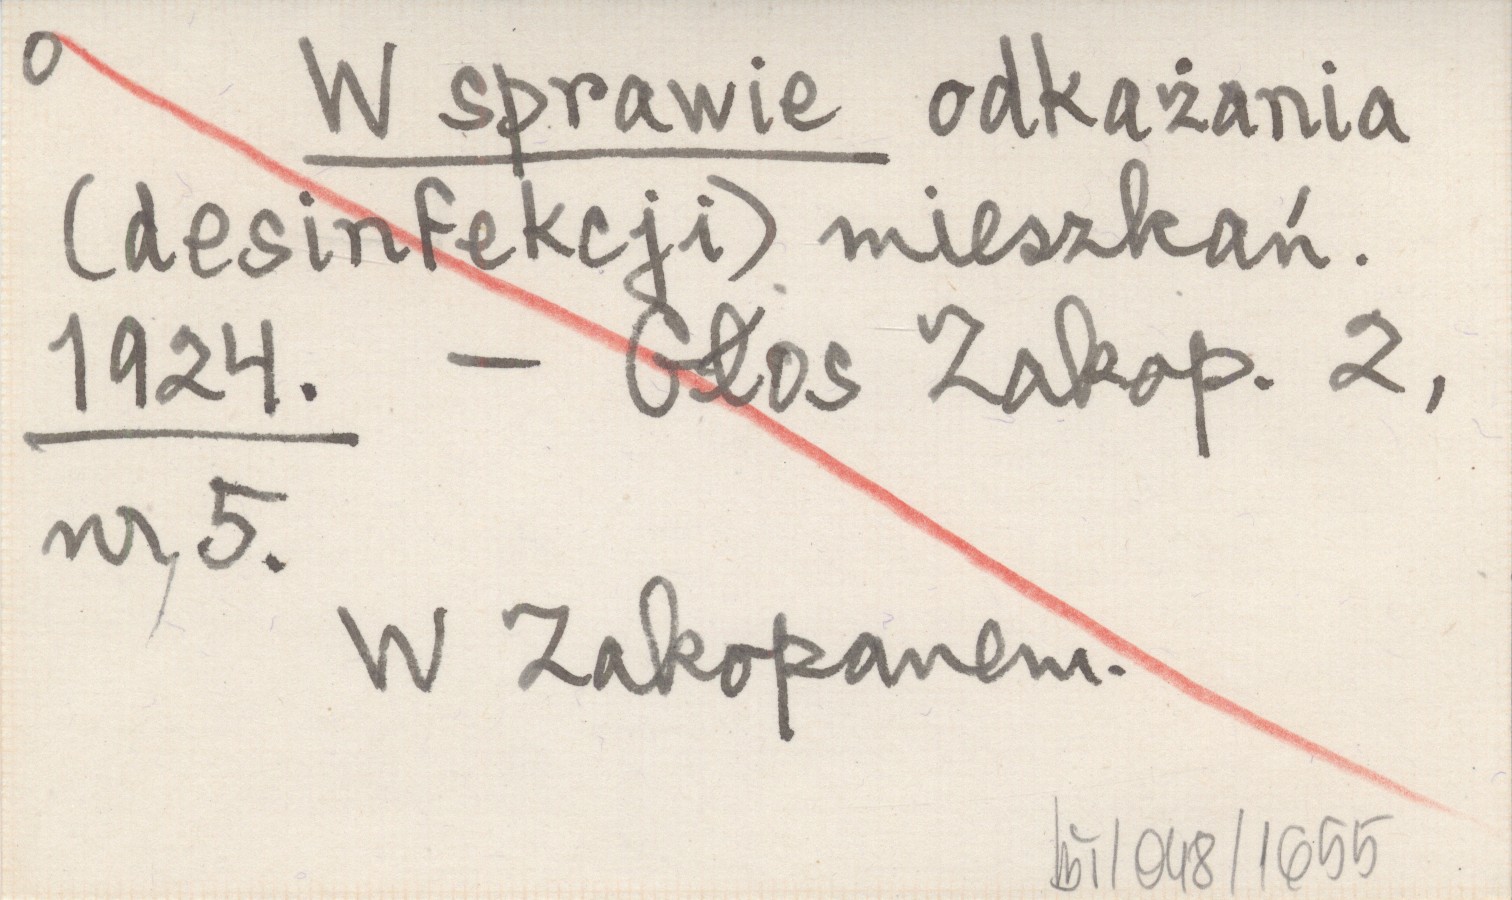 o W sprawie odkażania
(desinfekcji) mieszkań.
1924. — Głos Zakop. 2,
nr 5.
W Zakopanem.
/048/1655